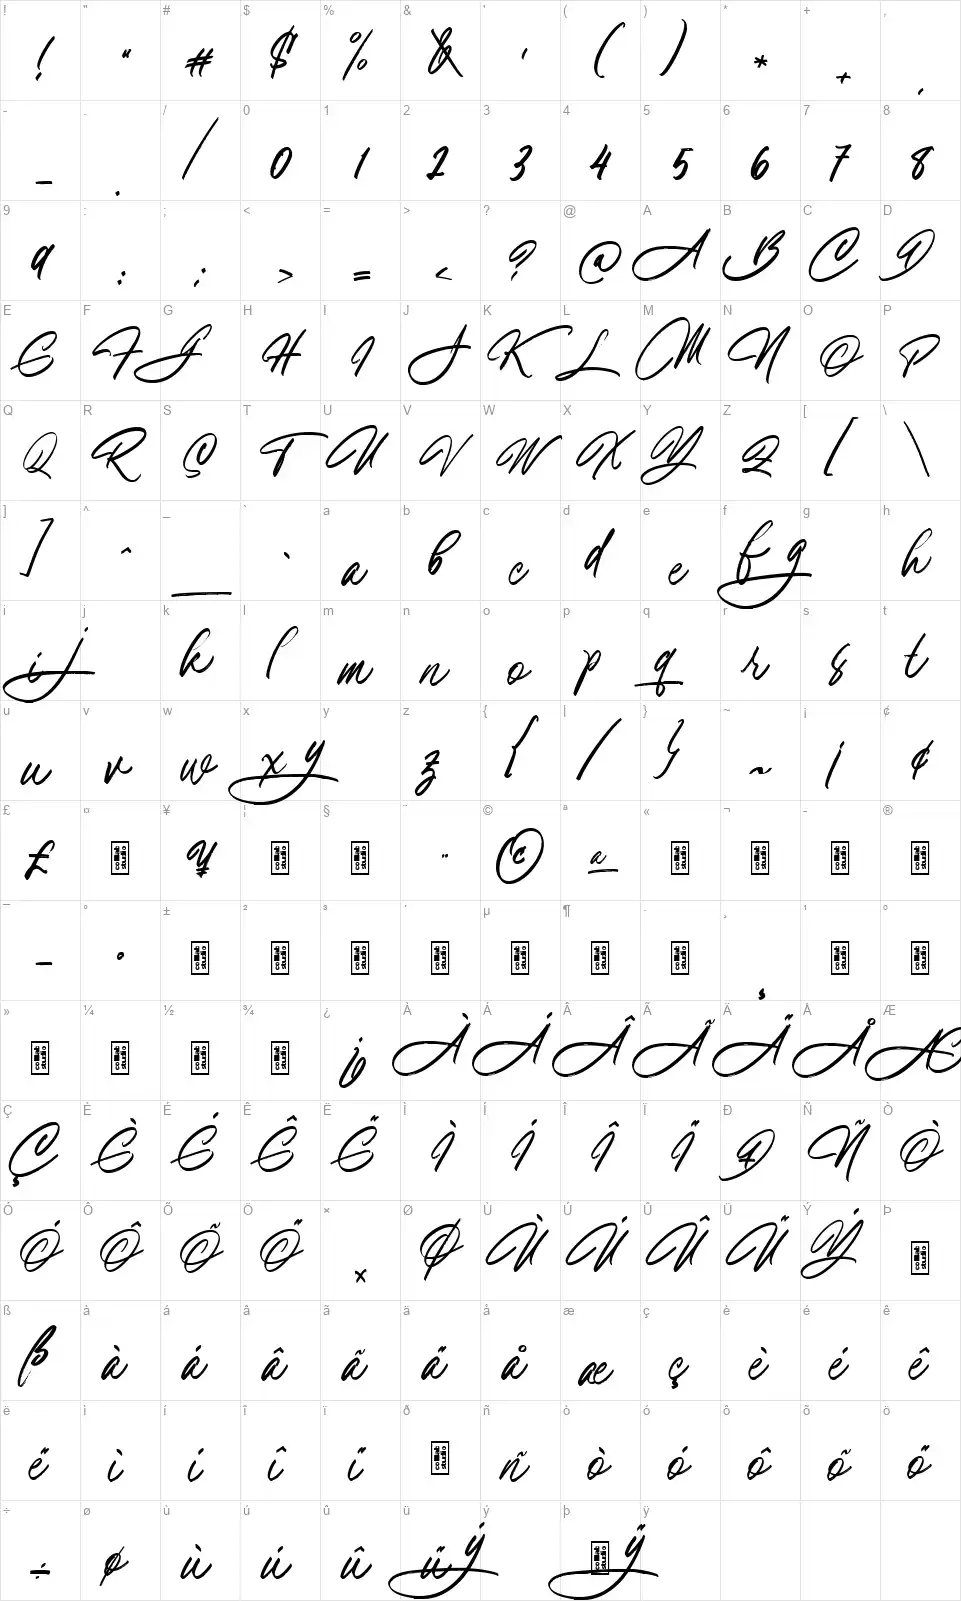 ! " # $ % & ' ( ) * + ,
! " # $ % & ' ( ) * + ,
- . / 0 1 2 3 4 5 6 7 8
- . / 0 1 2 3 4 5 6 7 8
9 : ; < = > ? @ A B C D
9 : ; > = < ? @ A B C D
E F G H I J K L M N O P
E F G H I J K L M N O P
Q R S T U V W X Y Z [ \
Q R S T U V W X Y Z [ \
] ^ _ ` a b c d e f g h
] ^ _ ` a b c d e f g h
i j k l m n o p q r s t
i j k l m n o p q r s t
u v w x y z { | } ~ ¡ ¢
u v w x y z { | } ~ ¡ ¢
£ ¤ ¥ ¦ § ¨ © ª « ¬ - ®
£ colllab studiio ¥ colllab studiio colllab studiio ¨ © ª colllab studiio colllab studiio colllab studiio colllab studiio
¯ ° ± ² ³ ´ µ ¶ · ¸ ¹ º
¯ ° colllab studiio colllab studiio colllab studiio colllab studiio colllab studiio colllab studiio colllab studiio ¸ colllab studiio colllab studiio
» ¼ ½ ¾ ¿ À Á Â Ã Ä Å Æ
colllab studiio colllab studiio colllab studiio colllab studiio ¿ À Á Â Ã Ä Å Æ
Ç È É Ê Ë Ì Í Î Ï Ð Ñ Ò
Ç È É Ê Ë Ì Í Î Ï Ð Ñ Ò
Ó Ô Õ Ö × Ø Ù Ú Û Ü Ý Þ
Ó Ô Õ Ö × Ø Ù Ú Û Ü Ý colllab studiio
ß à á â ã ä å æ ç è é ê
ß à á â ã ä å æ ç è é ê
ë ì í î ï ð ñ ò ó ô õ ö
ë ì í î ï colllab studiio ñ ò ó ô õ ö
÷ ø ù ú û ü ý þ ÿ
÷ ø ù ú û ü ý colllab studiio ÿ